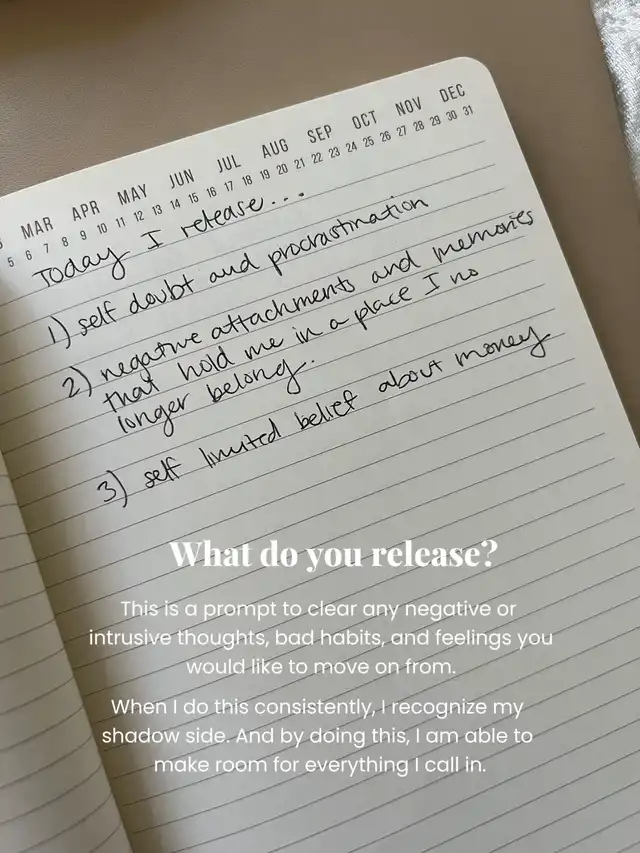 MAR APR MAY JUN JUL AUG SEP OCT NOV DEC
5 6 7 8 9 10 11 12 13 14 15 16 17 18 19 20 21 22 23 24 25 26 27 28 29 30 31
Today I release...
1) self doubt and procrastination
2) negative attachments and memories
that hold me in a place I no
longer belong.
3) self limited belief about money
What do you release?
This is a prompt to clear any negative or
intrusive thoughts, bad habits, and feelings you
would like to move on from.
When I do this consistently, I recognize my
shadow side. And by doing this, I am able to
make room for everything I call in.